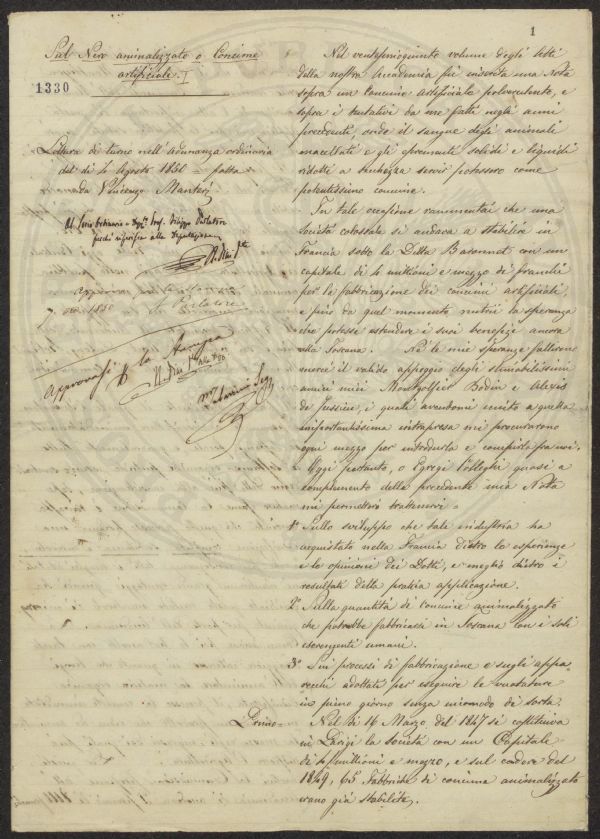 1
Sul Nero animalizzato o Concime
artificiale.
1330
Lettura di turno nell'Adunanza ordinaria
del dì 4 Agosto 1850 = fatta
da Vincenzo Manteri
Al Socio Ordinario e Segr. Prof. Filippo Parlatore
perchè riferisca alla Deputazione
Approva
7. 1850 Parlatore
Approvasi per la Stampa
Nel ventesimoquinto volume degli Atti
della nostra Accademia fu inserita una Nota
sopra un Concime artificiale polverulento, e
sopra i tentativi da me fatti negli anni
precedenti, onde il sangue degli animali
macellati e gli escrementi solidi e liquidi
ridotti a secchezza servir potessero come
potentissimo concime.
In tale occasione rammentai che una
Società colossale si andava a stabilire in
Francia sotto la Ditta Baronnet con un
capitale di 4 millioni e mezzo di franchi
per la fabbricazione dei concimi artificiali,
e fino da quel momento nutrii la speranza
che potesse estendere i suoi benefizi ancora
alla Toscana. Nè le mie speranze fallirono
mercè il valido appoggio degli stimabilissimi
amici miei Montgolfier Bodin e Alexis
de Jussieu, i quali avendomi unito a quella
importantissima intrapresa mi procurarono
ogni mezzo per introdurla e compirla fra noi.
Oggi pertanto, o Egregi Colleghi quasi a
complemento della precedente mia Nota
mi permetterò trattenervi =
1° Sullo sviluppo che tale industria ha
acquistato nella Francia dietro le esperienze
e le opinioni dei Dotti, e meglio dietro i
resultati della pratica applicazione.
2° Sulla quantità di Concime animalizzato
che potrebbe fabbricarsi in Toscana con i soli
escrementi umani.
3° Sui processi di fabbricazione e sugli appa
recchi adottati per eseguire le vuotature
in pieno giorno senza incomodo di sorta.
Primo =
Nel dì 16 Marzo del 1847 si costituiva
in Parigi la società con un Capitale
di 4 millioni e mezzo, e sul cadere del
1849, 65. Fabbriche di concime animalizzato
erano già stabilite.